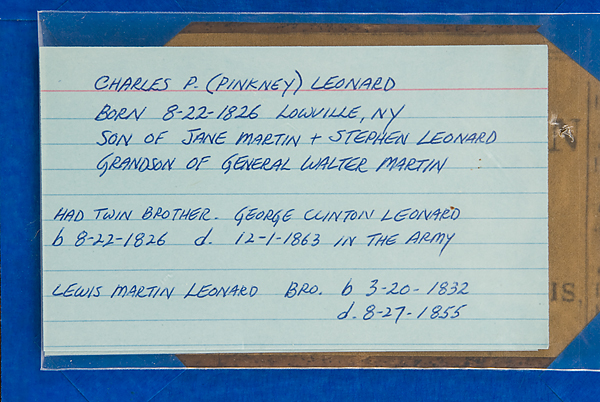 CHARLES P. (PINKNEY) LEONARD
BORN 8-22-1826 LOWVILLE, NY
SON OF JANE MARTIN + STEPHEN LEONARD
GRANDSON OF GENERAL WALTER MARTIN
HAD TWIN BROTHER. GEORGE CLINTON LEONARD
b 8-22-1826 d. 12-1-1863 IN THE ARMY
LEWIS MARTIN LEONARD BRO. b 3-20-1832
d. 8-27-1855
N
IS.